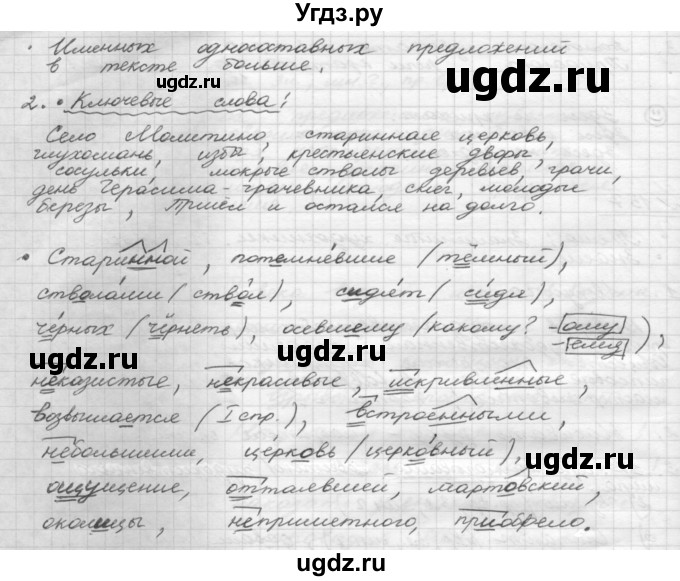 Угдз.ру
• Именных односоставных предложений
в тексте больше.
2. • Ключевые слова:
Село Молитино, стариннаяя церковь,
глухомань, избы, крестьянские дворы,
сосульки, мокрые стволы деревьев, грачи,
день Герасима-грачевника, снег, молодые
березы, пришёл и остался на долго.
• Старинной, потемневшие (тёмный),
стволами (ствол), сидят (сидя),
чёрных (чёрнеть), осевшему (какому? -ому
-ему),
неказистые, некрасивые, искривлённые,
возвышается (I спр.), встроенными,
небольшими, церковь (церковный),
ощущение, оттаявшей, мартовский,
околицы, неприметного, приобрело.
uqdz.ru
uqdz.ru
uqdz.ru
uqdz.ru
uqdz.ru
uqdz.ru
uqdz.ru
uqdz.ru
uqdz.ru